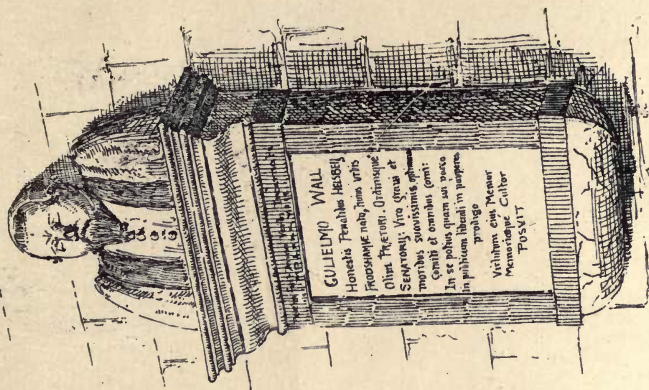 GULIELMO WALL
Honestis Penatibus HELSBEIJ
FRODSHAMIÆ nato, hujus urbis
Olim PRÆTORI. Ordinisque
SENATORIJ Viro gravi et
moribus suavissimis, optimo
Comiti et omnibus comi:
In se potius quam suis parco
in publicum liberali in pauperes
prodigo
Virtutum ejus Memor
Memoriæque Cultor
POSVIT